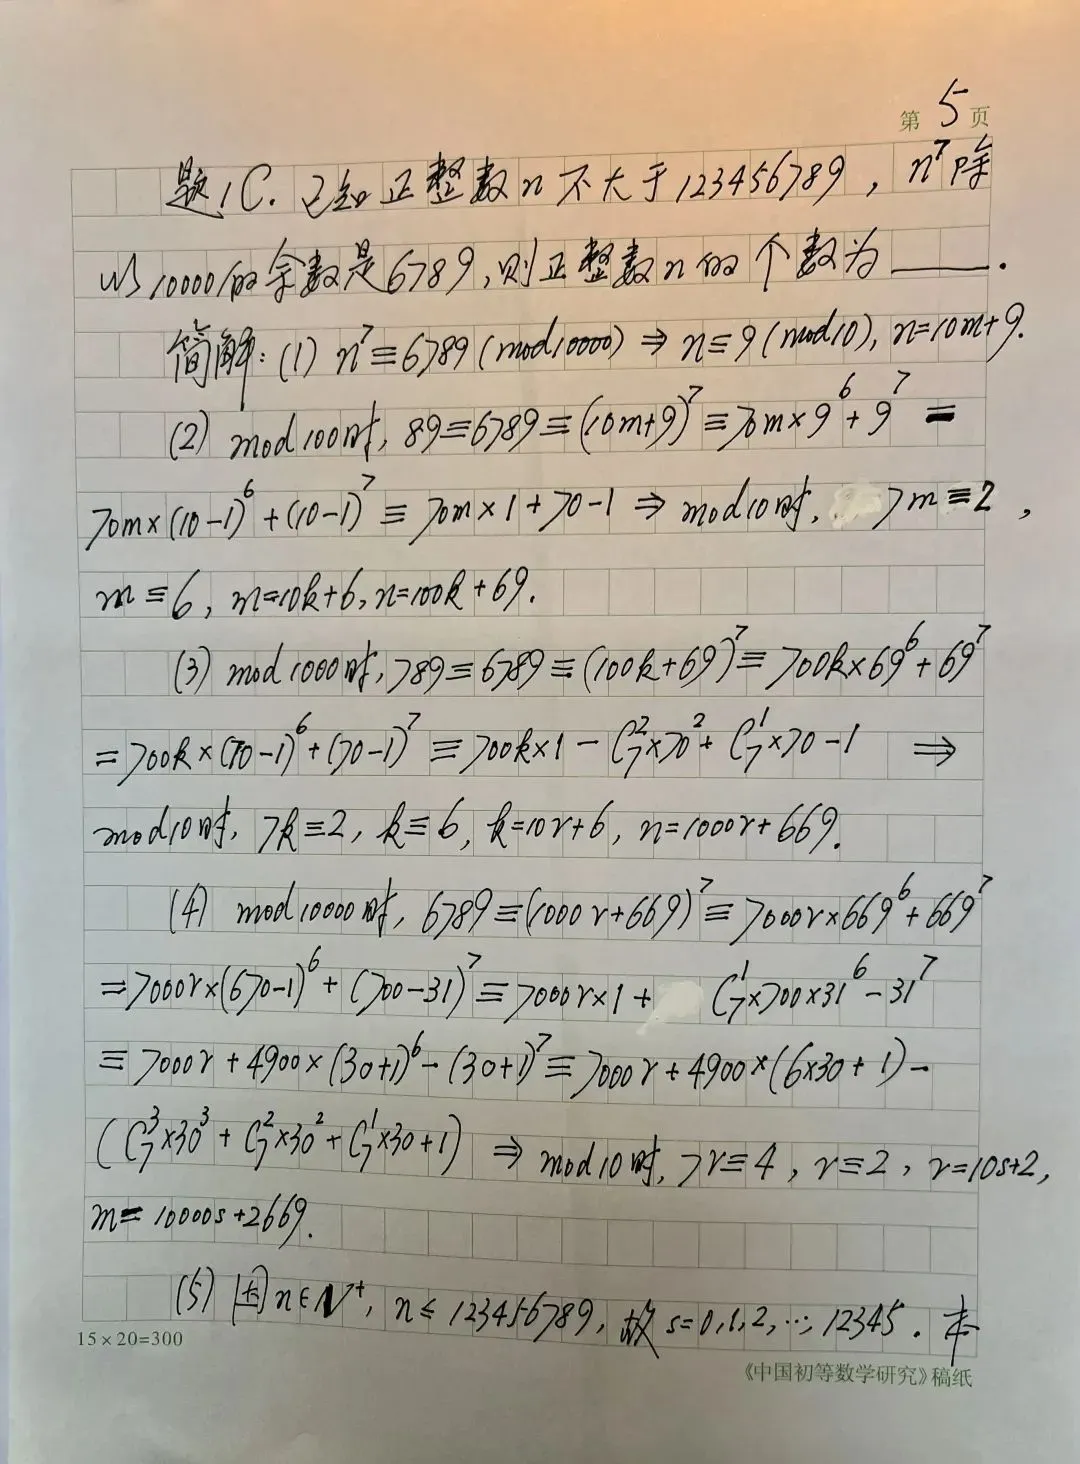 第5页
题1C. 已知正整数n不大于123456789, n⁷除
以10000的余数是6789,则正整数n的个数为____.
简解:(1) n⁷≡6789(mod10000)⇒n≡9(mod10), n=10m+9.
(2) mod100时, 89≡6789≡(10m+9)⁷≡70m×9⁶+9⁷=
70m×(10-1)⁶+(10-1)⁷≡70m×1+70-1⇒mod10时, 7m≡2,
m≡6, m=10k+6, n=100k+69.
(3) mod1000时, 789≡6789≡(100k+69)⁷≡700k×69⁶+69⁷
=700k×(70-1)⁶+(70-1)⁷≡700k×1-C₇²×70²+C₇¹×70-1 ⇒
mod10时, 7k≡2, k≡6, k=10r+6, n=1000r+669.
(4) mod10000时, 6789≡(1000r+669)⁷≡7000r×669⁶+669⁷
=7000r×(670-1)⁶+(700-31)⁷≡7000r×1+C₇¹×700×31⁶-31⁷
≡7000r+4900×(30+1)⁶-(30+1)⁷≡7000r+4900×(6×30+1)-
(C₇³×30³+C₇²×30²+C₇¹×30+1)⇒mod10时, 7r≡4, r≡2, r=10s+2,
m=10000s+2669.
(5) 因n∈N⁺, n≤123456789, 故s=0,1,2,…,12345. 本
15×20=300
《中国初等数学研究》稿纸